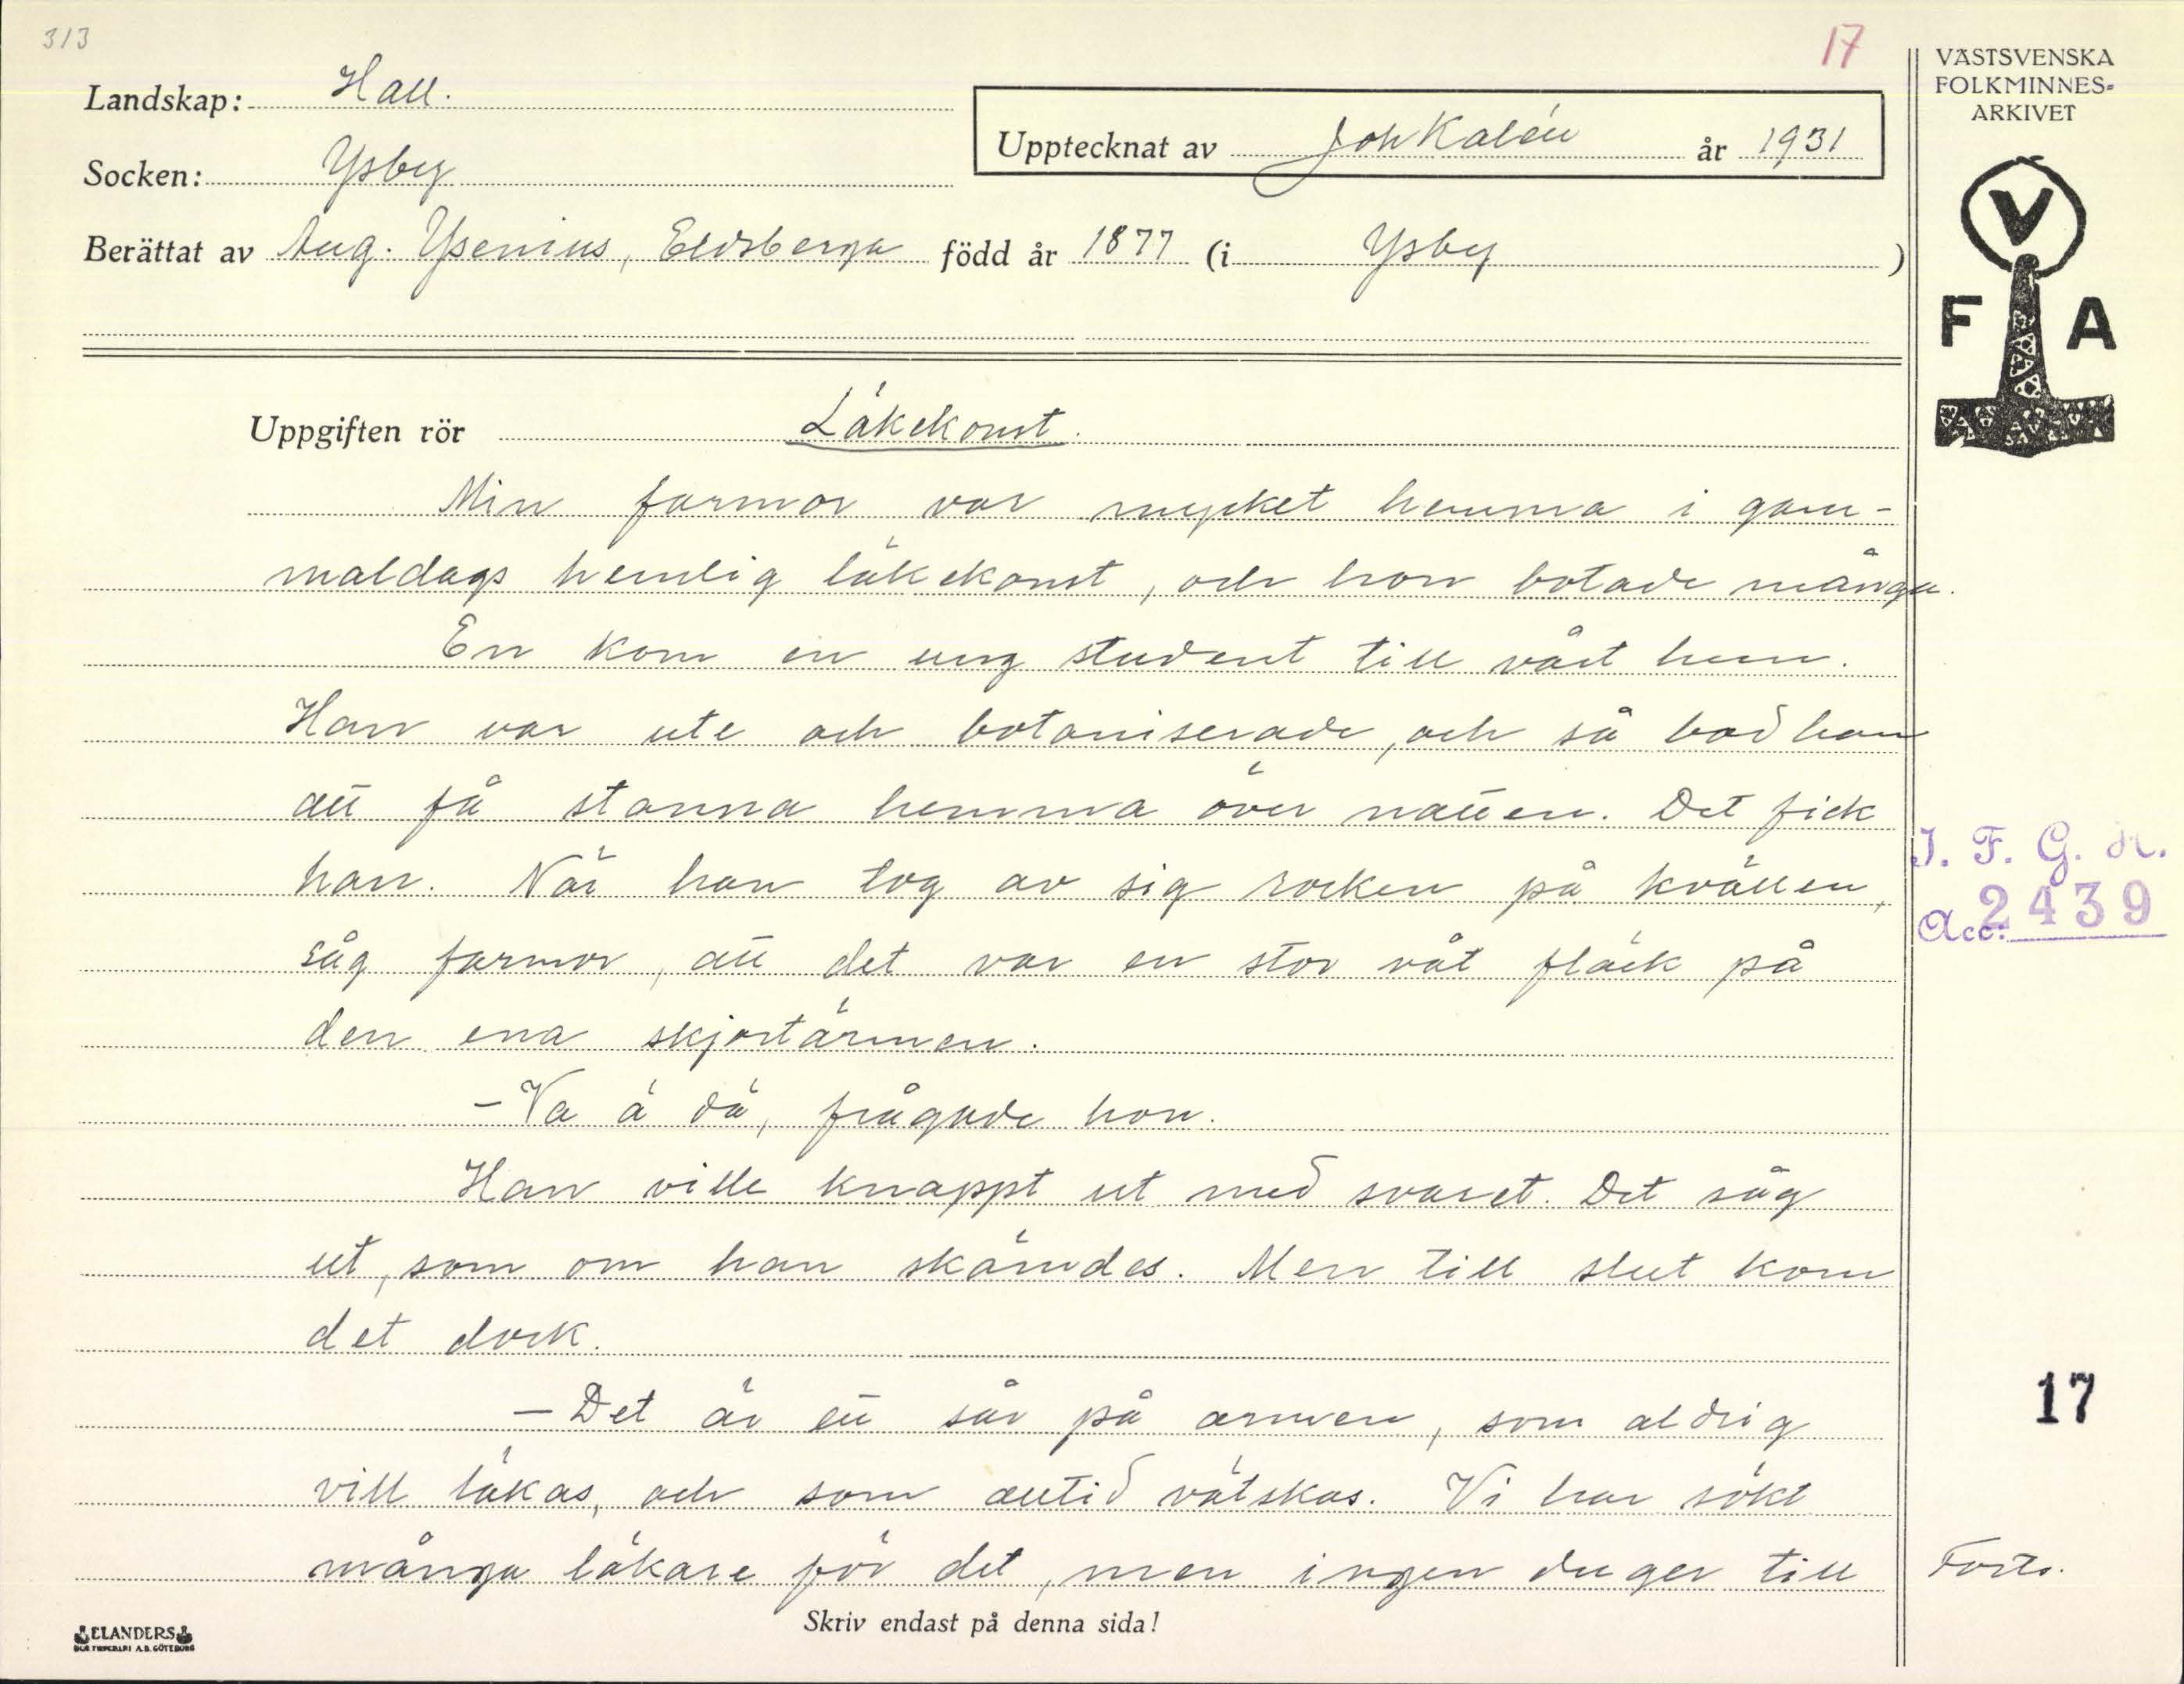 313
17
Landskap: Hall.
Socken: Ysby
Upptecknat av Joh Kalén år 1931
Berättat av Aug. Ysenius, Eldsberga född år 1877 (i Ysby )
VÄSTSVENSKA
FOLKMINNES-
ARKIVET
V
F A
Uppgiften rör Läkekonst.
Min farmor var mycket hemma i gam-
maldags hemlig läkekonst, och hon botade många.
En kom en ung student till vårt hem.
Han var ute och botaniserade, och så bad han
att få stanna hemma över natten. Det fick
han. När han tog av sig rocken på kvällen,
såg farmor, att det var en stor våt fläck på
den ena skjortärmen.
- Va ä dä, frågade hon.
Han ville knappt ut med svaret. Det såg
ut, som om han skämdes. Men till slut kom
det dock.
- Det är ett sår på armen, som aldrig
vill läkas, och som alltid vätskas. Vi har sökt
många läkare för det, men ingen duger till
I. F. G. H.
Acc: 2439
17
Forts.
Skriv endast på denna sida!
ELANDERS
BOKTRYCKERI A.B. GÖTEBORG